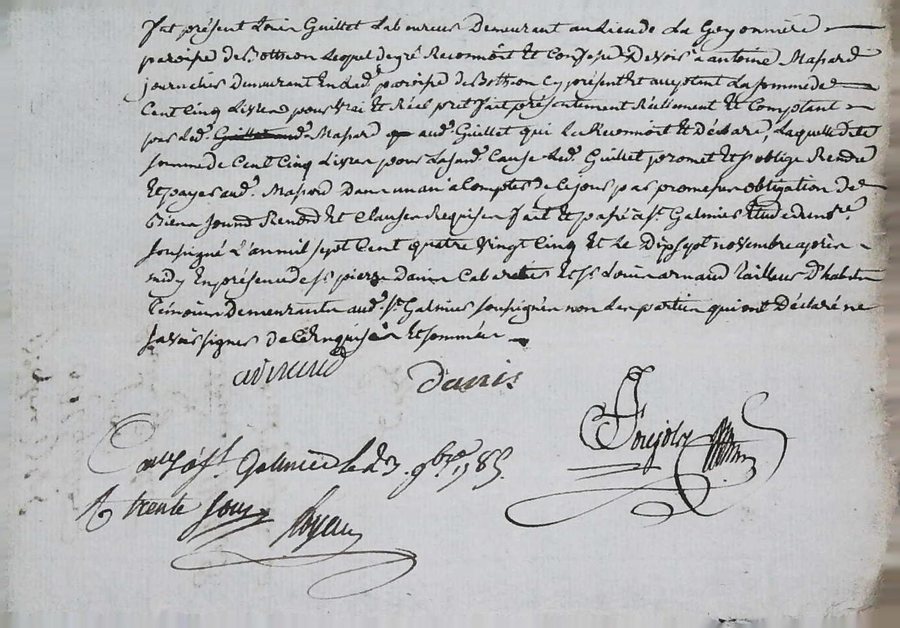 fut présent Louis Guillet Laboureur Demeurant au Lieu de La Geyonnière
paroisse de Bothéon Lequel de gré Reconnoit Et Confesse Devoir a antoine Massard
journalier Demeurant En Lad. paroisse de Bothéon Cy présent et acceptant La somme de
Cent Cinq Livres pour vrai Et Réel pret fait présentement Réellement Et Comptant
par Led. Massard aud. Guillet qui le Reconnoit Et déclare, Laquelle dite
somme de Cent Cinq Livres pour La susd. Cause Led. Guillet promet Et s'oblige Rendre
Et payer aud. Massard Dans un an a Compter de Ce jour par promesse obligation de
Biens Et Clauses Requises fait Et passé a St. Galmier Etude du nore.
soussigné L'an mil sept Cent quatre vingt Cinq Et le Dix sept novembre après
midy En présence de sr. pierre Cabaretier Et sr. Louis arnaud Tailleur D'habits
Témoins Demeurants aud. St. Galmier soussignés non Les parties qui ont Déclaré ne
savoir signer de Ce Enquises Et sommées
arnaud Danis
Conlé a St. Galmier le 23 9bre 1785
R trente sous